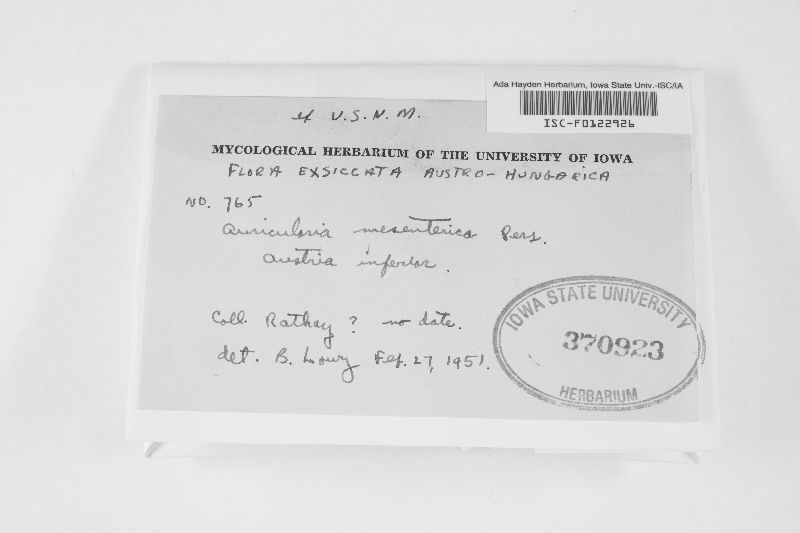 Ada Hayden Herbarium, Iowa State Univ.-ISC/IA
ISC-F0122926
ex U.S.N.M.
MYCOLOGICAL HERBARIUM OF THE UNIVERSITY OF IOWA
FLORA EXSICCATA AUSTRO-HUNGARICA
NO. 765
Auricularia mesenterica Pers.
Austria inferior.
Coll. Rathay ? no date.
det. B. Lowy Feb. 27, 1951.
IOWA STATE UNIVERSITY
370923
HERBARIUM